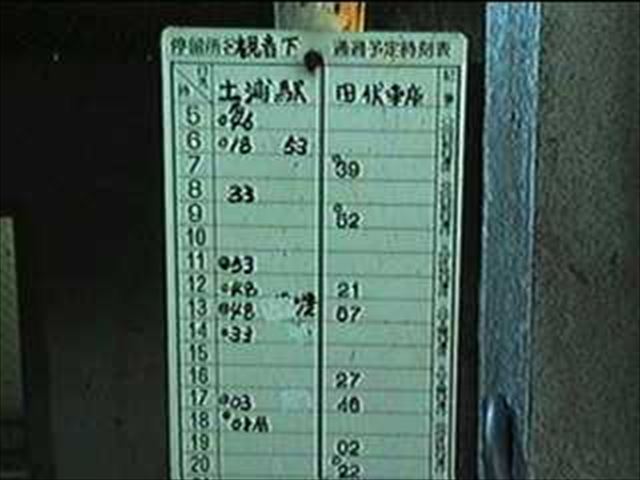 停留所名 観音下 通過予定時刻表
行先 土浦駅 田伏車庫
5 46
6 18 53
7 39
8 33
9 02
10
11 53
12 48 21
13 48 07
14 33
15
16 27
17 03 46
18
19 02
20 22